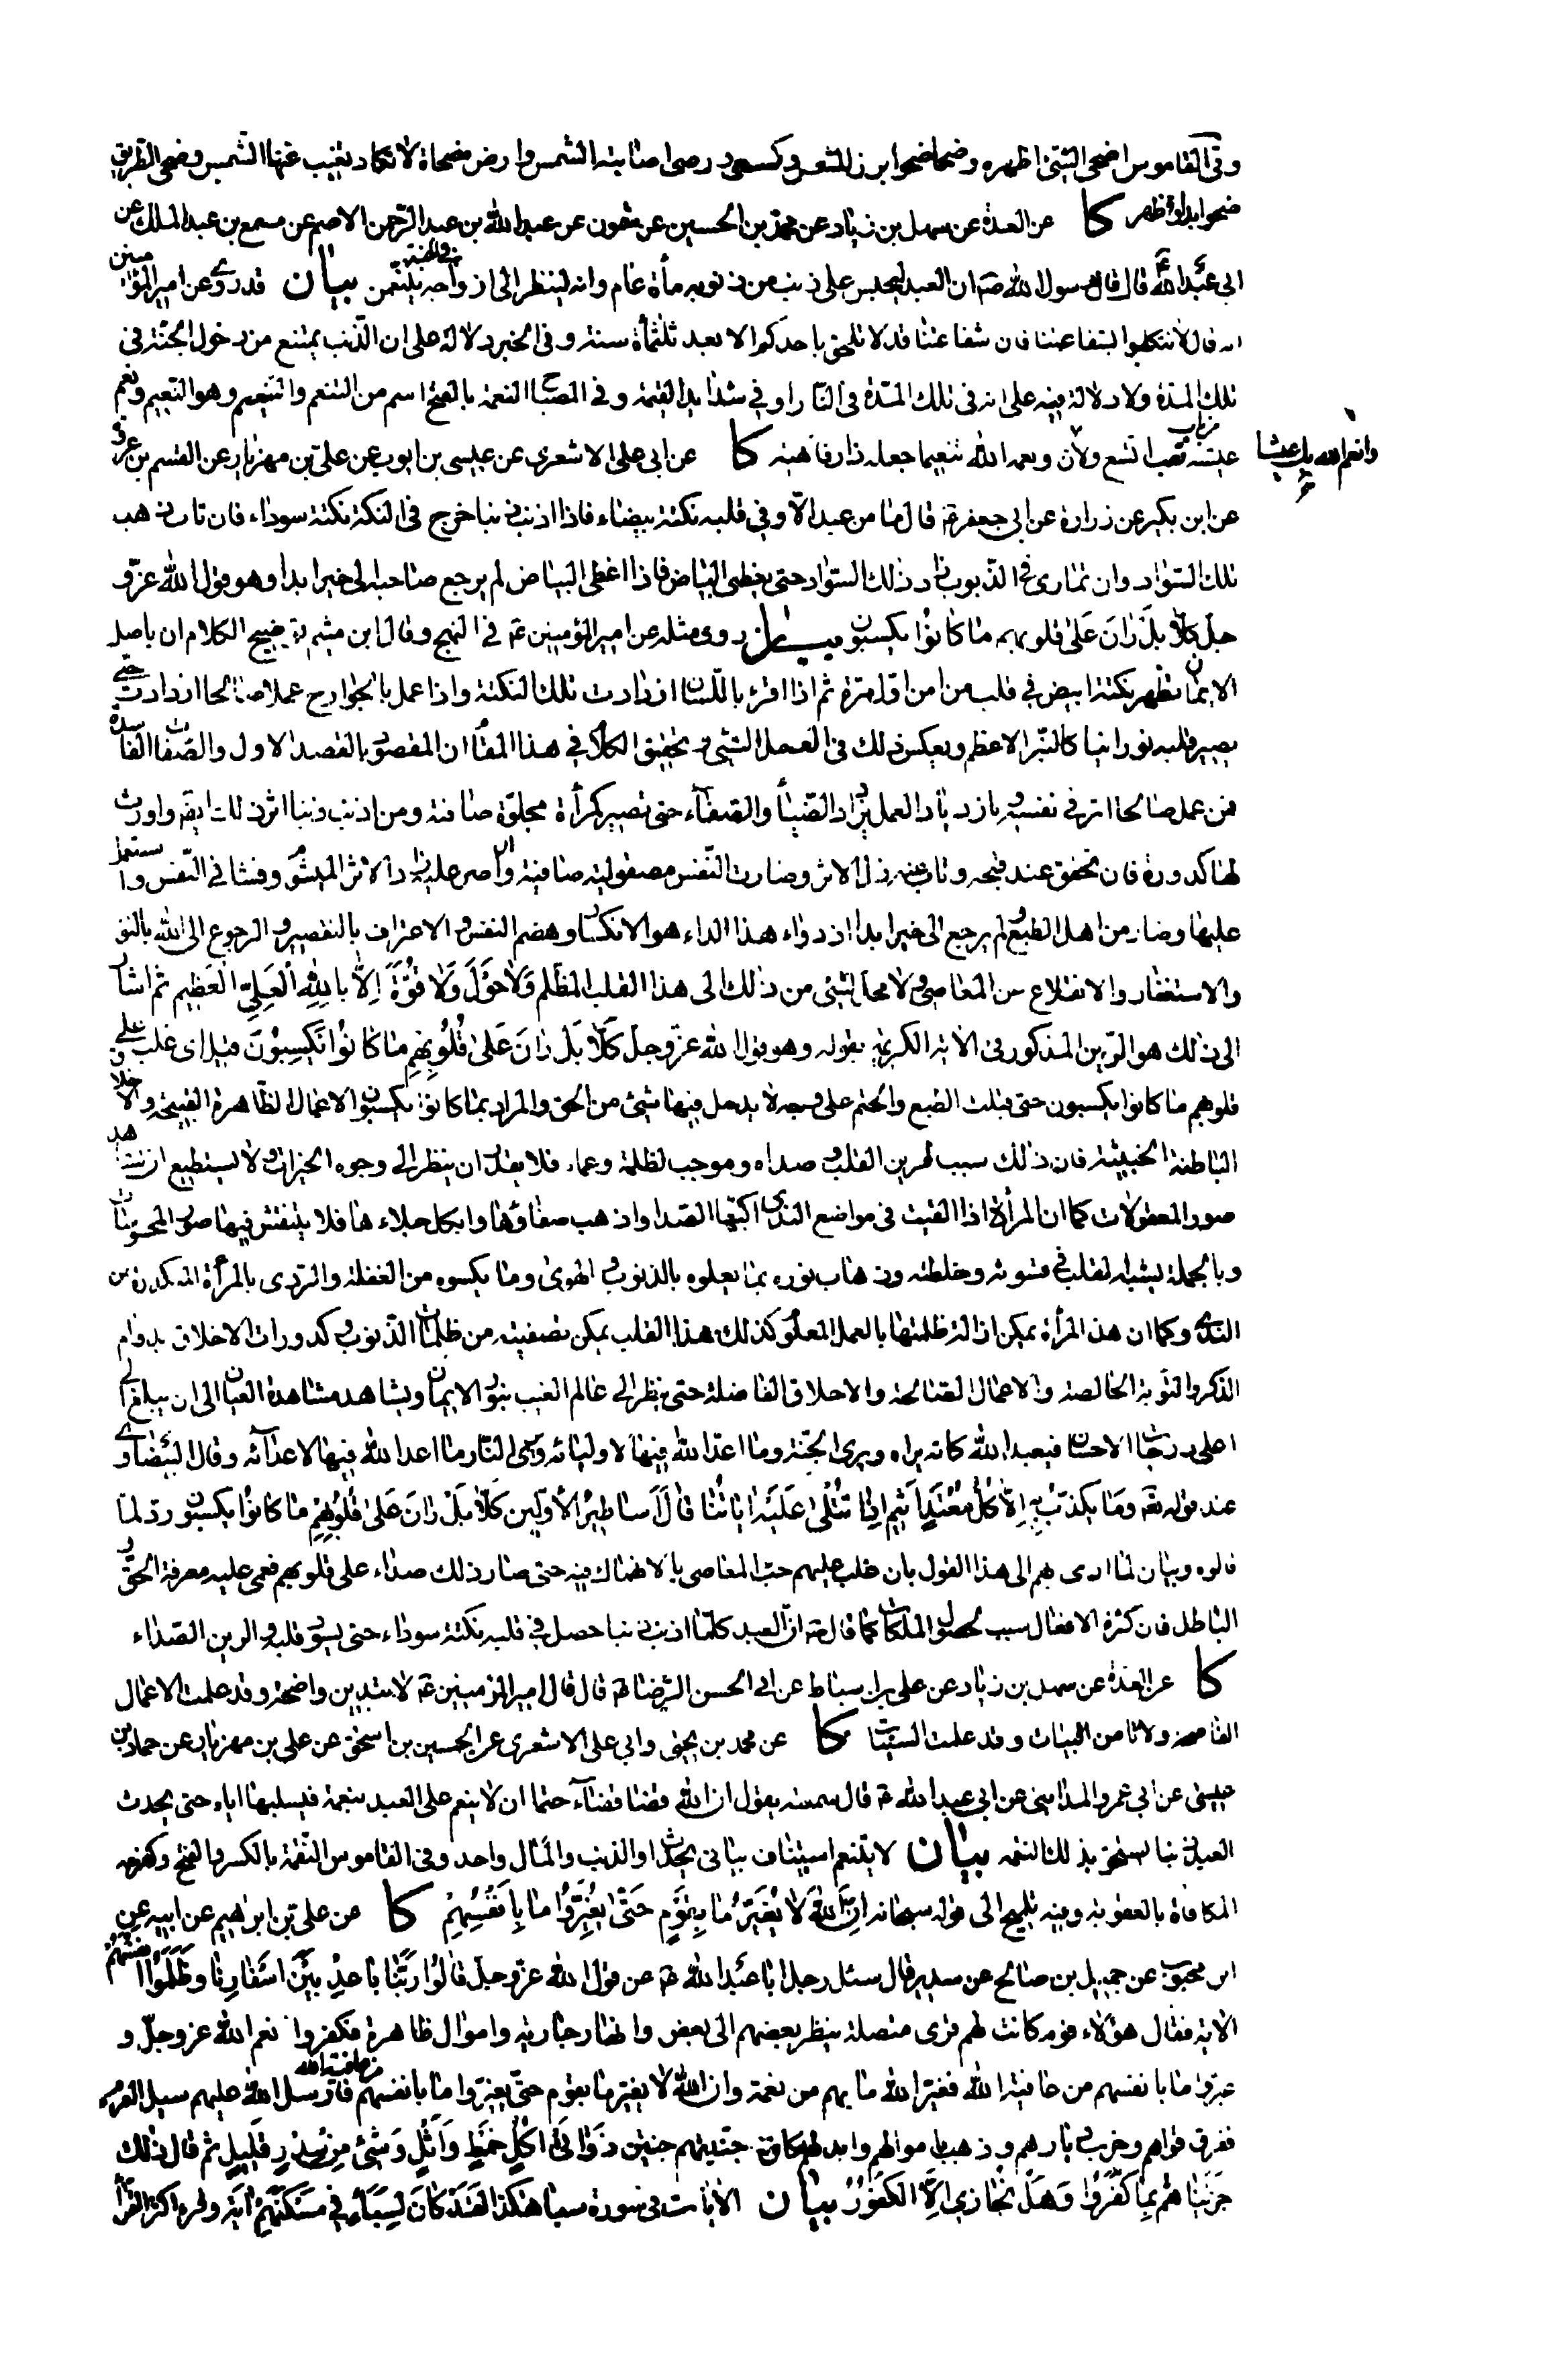 وفي القاموس اضحى الشئ اظهره وضحا ضحوا برز للشمس وكسعى ورضى اصابته الشمس وارض مضحاة لا تكاد تغيب عنها الشمس وضحى الطريق
ضحوا بدا وظهر كا عن العدة عن سهل بن زياد عن محمد بن الحسين بن شمون عن عبد الله بن عبد الرحمن الاصم عن مسمع بن عبد الملك عن
ابي عبد الله ع قال قال رسول الله ص ان العبد ليحبس على ذنب من ذنوبه مأة عام وانه لينظر الى ازواجه في الجنة يتنعمن بيان قد روي عن امير المؤمنين
انه قال لا تتكلوا بشفاعتنا فان شفاعتنا قد لا تلحق باحدكم الا بعد ثلثمأة سنة وفي الخبر دلالة على ان الذنب يمنع من دخول الجنة في
تلك المدة ولا دلالة فيه على انه في تلك المدة في النار او في شدايد القيمة وفي المصباح النعمة بالفتح اسم من التنعم والتنعيم وهو النعيم ونعم
عيشه من باب تعب اتسع ولان ونعمه الله تنعيما جعله ذا رفاهية كا عن ابي علي الاشعري عن عيسى بن ايوب عن علي بن مهزيار عن القسم بن عروة
وانعم الله بك عينا
عن ابن بكير عن زرارة عن ابي جعفر ع قال ما من عبد الا وفي قلبه نكتة بيضاء فاذا اذنب ذنبا خرج في النكتة نكتة سوداء فان تاب ذهب
تلك السواد وان تمادى في الذنوب زاد ذلك السواد حتى يغطي البياض فاذا اغطى البياض لم يرجع صاحبه الى خير ابدا وهو قول الله عز و
جل كلا بل ران على قلوبهم ما كانوا يكسبون بيان روى مثله عن امير المؤمنين ع في النهج وقال ابن ميثم ره الكلام ان باصل
الايمان تظهر نكتة ابيض في قلب من امن اول مرة ثم اذا اقر باللسان ازدادت تلك النكتة واذا عمل بالجوارح عملا صالحا ازدادت حتى
يصير قلبه نورانيا كالنير الاعظم وبعكس ذلك في العمل السئ وتحقيق الكلام في هذا المقام ان المقصود بالقصد الاول والصفات الفاسدة
فمن عمل صالحا اثر في نفسه وبازدياد العمل يزداد الضياء والصفاء حتى تصير كمرأة مجلوة صافية ومن اذنب ذنبا اثر ذلك ايضا واورث
لها كدورة فان تحقق عنده قبحه وتاب عنه زال الاثر وصارت النفس مصقولة صافية وان اصر عليه زاد الاثر الميشوم وفشا في النفس واستعلى
عليها وصار من اهل الطبع ولم يرجع الى خير ابدا اذ دواء هذا الداء هو الانكسار وهضم النفس والاعتراف بالتقصير والرجوع الى الله بالتوبة
والاستغفار والانقلاع عن المعاصي ولا محال لشئ من ذلك الى هذا القلب المظلم ولا حول ولا قوة الا بالله العلي العظيم ثم اشار
الى ذلك هو الرين المذكور في الاية الكريمة بقوله وهو قول الله عز وجل كلا بل ران على قلوبهم ما كانوا يكسبون قيل اي غلب على
قلوبهم ما كانوا يكسبون حتى قبلت الطبع والختم على وجه لا يدخل فيها شئ من الحق والمراد بما كانوا يكسبون الاعمال الظاهرة القبيحة والاخلاق
الباطنة الخبيثة فان ذلك سبب لرين القلب وصداه وموجب لظلمة وعماه فلا يقدر ان ينظر الى وجوه الخيرات ولا يستطيع ان يشاهد
صور المعقولات كما ان المرأة اذا القيت في مواضع الندى اكبتها الصدا واذهب صفاؤها وابكل جلاءها فلا ينتقش فيها صور المحسوسات
وبالجملة يشبه القلب في قسوته وغلظته وذهاب نوره بما يعلوه بالذنوب والهوى وما يكسوه من الغفلة والردى بالمرأة المنكدرة من
الندى وكما ان هذه المرأة يمكن ازالة ظلمتها بالعمل المعلوم كذلك هذا القلب يمكن تصفيته من ظلمات الذنوب وكدورات الاخلاق بدوام
الذكر والتوبة الخالصة والاعمال الصالحة والاخلاق الفاضلة حتى ينظر الى عالم الغيب بنور الايمان ويشاهد مشاهدة العيان الى ان يبلغ الى
اعلى درجات الاحسان فيعبد الله كانه يراه ويرى الجنة وما اعد الله فيها لاوليائه ويرى النار وما اعد الله فيها لاعدائه وقال البيضاوي
عند قوله تعه وما يكذب به الا كل معتد اثيم اذا تتلى عليه اياتنا قال اساطير الاولين كلا بل ران على قلوبهم ما كانوا يكسبون رد لما
قالوه وبيان لما ادى بهم الى هذا القول بان غلب عليهم حب المعاصي بالانهماك فيه حتى صار ذلك صداء على قلوبهم فعمى عليه معرفة الحق و
الباطل فان كثرة الافعال سبب لحصول الملكات كما قال ص ان العبد كلما اذنب ذنبا حصل في قلبه نكتة سوداء حتى يسود قلبه والرين الصداء
كا عن العدة عن سهل بن زياد عن علي بن اسباط عن ابي الحسن الرضا ع قال قال امير المؤمنين ع لا تبدين واضحة وقد علمت الاعمال
الفاضحة ولا تامن البيات وقد علمت السيئات كا عن محمد بن يحيى وابي علي الاشعري عن الحسين بن اسحق عن علي بن مهزيار عن حماد بن
عيسى عن ابي عمرو المدايني عن ابي عبد الله ع قال سمعته يقول ان الله قضا قضاء حتما ان لا ينعم على العبد بنعمة فيسلبها اياه حتى يحدث
العبد ذنبا يستحق بذلك النقمة بيان لا ينعم استيناف بياني يحدث او الذنب والمآل واحد وفي القاموس النقمة بالكسر والفتح وكفرحة
المكافاة بالعقوبة وفيه تلميح الى قوله سبحانه ان الله لا يغير ما بقوم حتى يغيروا ما بانفسهم كا عن علي بن ابراهيم عن ابيه عن
ابن محبوب عن جميل بن صالح عن سدير قال سئل رجل ابا عبد الله ع عن قول الله عز وجل قالوا ربنا باعد بين اسفارنا وظلموا انفسهم
الاية فقال هؤلاء قوم كانت لهم قرى متصلة ينظر بعضهم الى بعض وانهار جارية واموال ظاهرة فكفروا نعم الله عز وجل و
غيروا ما بانفسهم من عافية الله فغير الله ما بهم من نعمة وان الله لا يغير ما بقوم حتى يغيروا ما بانفسهم فارسل الله عليهم سيل العرم
ففرق قراهم وخرب ديارهم وذهب باموالهم وابدلهم مكان جنتيهم جنتين ذواتي اكل خمط واثل وشئ من سدر قليل ثم قال ذلك
جزيناهم بما كفروا وهل نجازي الا الكفور بيان الايات في سورة سبا هكذا لقد كان لسبأ في مسكنهم آية وقراء اكثر القراء